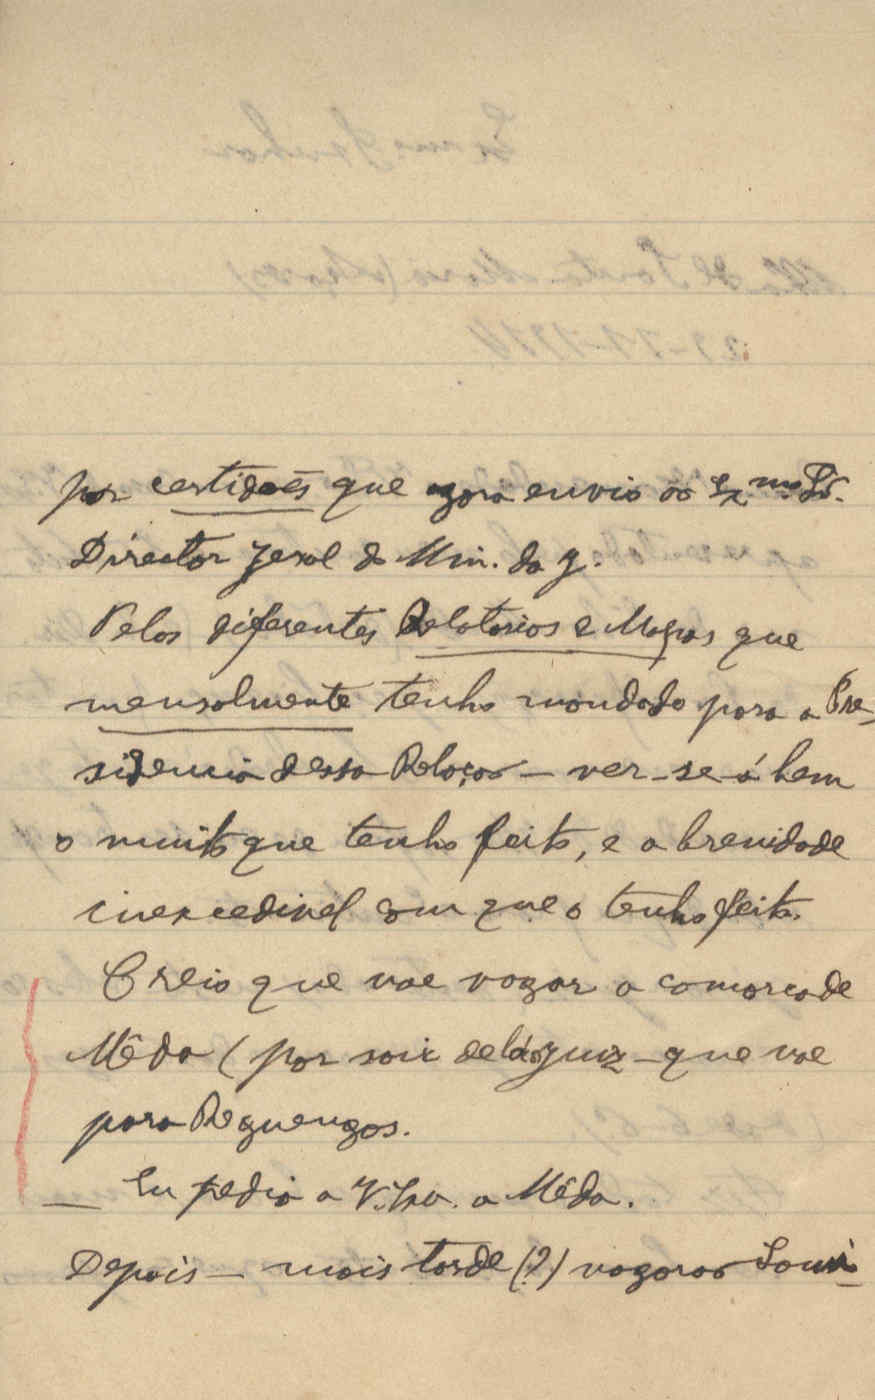 por certidoēs que agora envio ao Exmo Sr.
Director geral do Min. da J.
Pelos diferentes Relatorios e Mapas que
mensalmente tenho mandado para a Pre-
sidencia dessa Relação — ver-se-á bem
o muito que tenho feito, e a brevidade
inexcedivel com que o tenho feito.
Creio que vae vagar a comarca de
Mêda (por sair de lá o Juiz — que vae
para Reguengos.
— Eu pedia a V. Exa. a Mêda.
Depois — mais tarde (?) vagarao